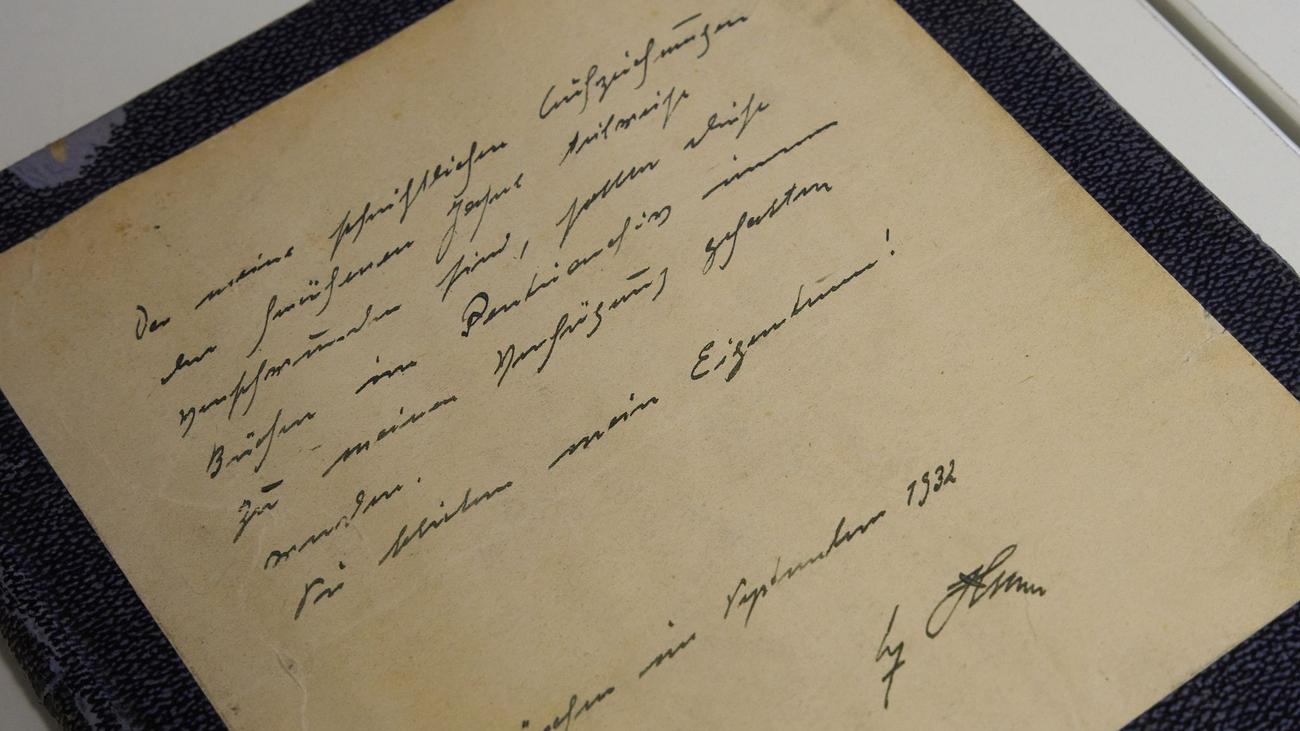 Da meine schriftlichen Aufzeichnungen
der früheren Jahre teilweise
verschwunden sind, sollen diese
Bücher im Panktionchiv immer
zu meiner Verfügung gehalten
werden.
Sie bleiben mein Eigentum!
im September 1932